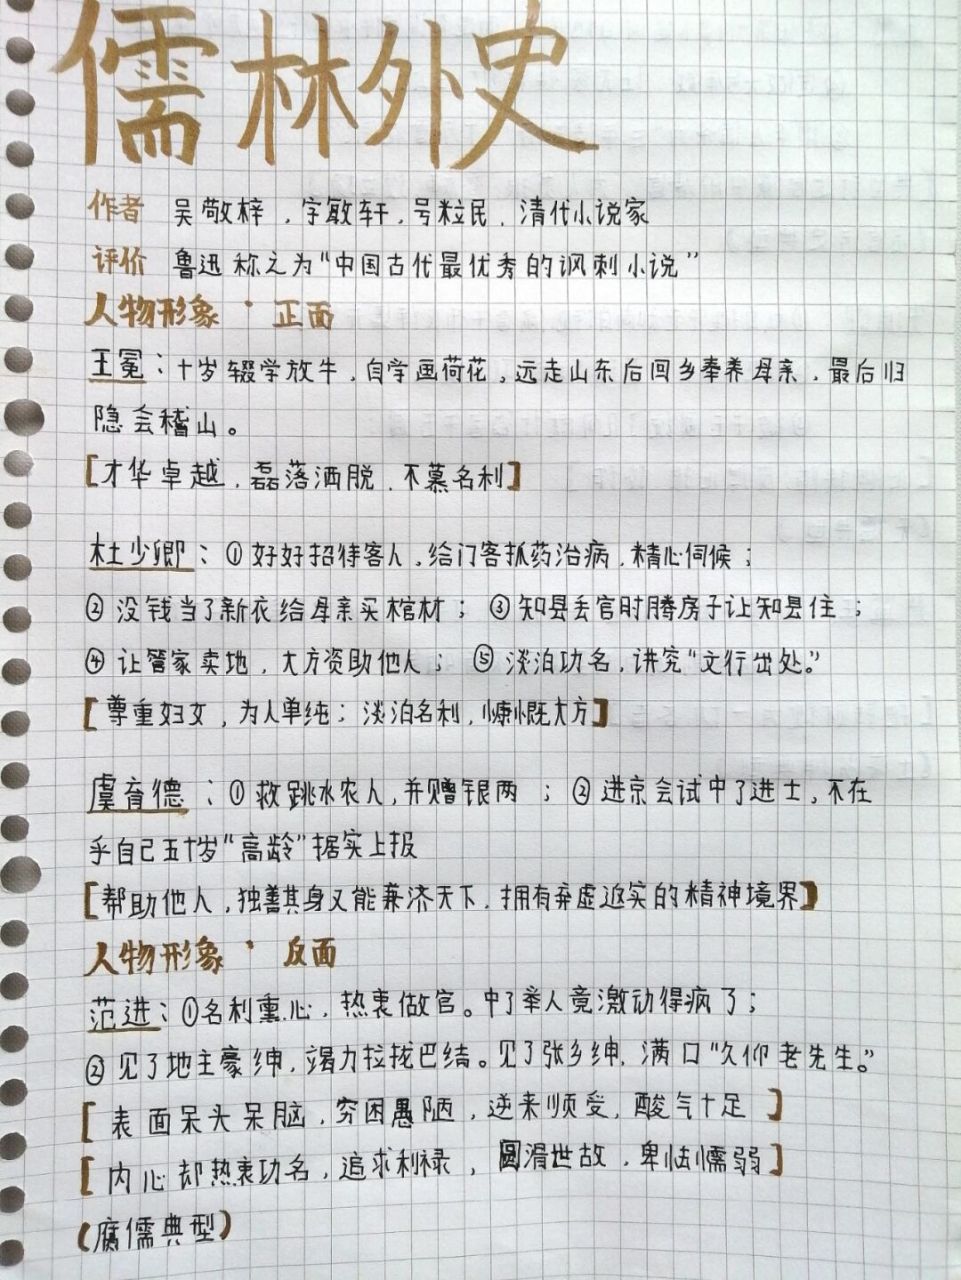 儒林外史
作者 吴敬梓，字敏轩，号粒民，清代小说家
评价 鲁迅称之为“中国古代最优秀的讽刺小说”
人物形象·正面
王冕：十岁辍学放牛，自学画荷花，远走山东后回乡奉养母亲，最后归
隐会稽山。
[才华卓越，磊落洒脱，不慕名利]
杜少卿：①好好招待客人，给门客抓药治病，精心伺候；
②没钱当了新衣给母亲买棺材；③知县丢官时腾房子让知县住；
④让管家卖地，大方资助他人；⑤淡泊功名，讲究“文行出处。”
[尊重妇女，为人单纯；淡泊名利，慷慨大方]
虞育德：①救跳水农人，并赠银两；②进京会试中了进士，不在
乎自己五十岁“高龄”据实上报
[帮助他人，独善其身又能兼济天下，拥有弃虚返实的精神境界]
人物形象·反面
范进：①名利熏心，热衷做官。中了举人竟激动得疯了；
②见了地主豪绅，竭力拉拢巴结。见了张乡绅，满口“久仰老先生。”
[表面呆头呆脑，穷困愚陋，逆来顺受，酸气十足]
[内心却热衷功名，追求利禄，圆滑世故，卑怯懦弱]
(腐儒典型)